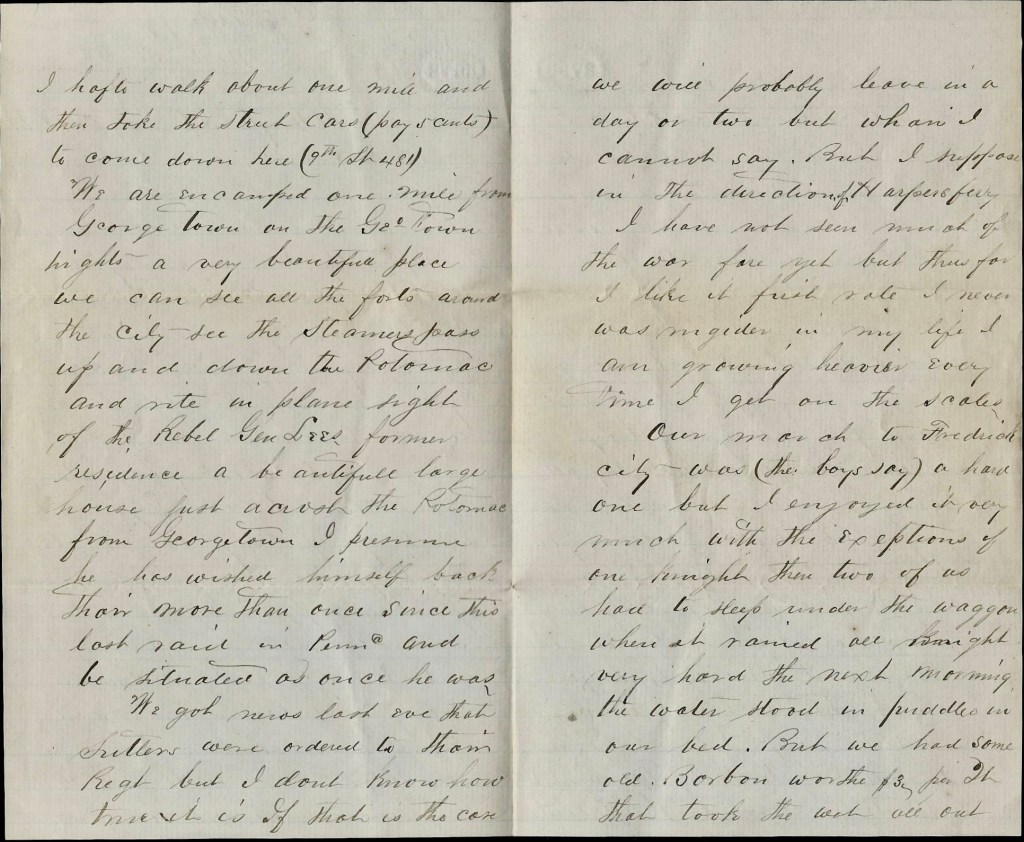 I hafto walk about one mile and
then take the street cars (pay 5 cents)
to come down here (9th St 481)
We are encamped one mile from
George town on the Geo Town
hights a very beautifull place
we can see all the forts around
the city see the steamers pass
up and down the Potomac
and rite in plane sight
of the Rebel Gen Lees former
residence a beautifull large
house just acrost the Potomac
from Georgetown I presume
he has wished himself back
thair more than once since this
last raid in Penna and
be situated as once he was
We got news last eve that
Sutlers were ordered to thair
Regt but I dont know how
true it is If that is the case
we will probably leave in a
day or two but whair I
cannot say. But I suppose
in the direction of Harpersfery
I have not seen much of
the war fare yet but thus far
I like it first rate I never
was rugider in my life I
am growing heavier every
time I get on the scales
Our march to Fredrick
city was (the boys say) a hard
one but I enjoyed it very
much with the exceptions of
one knight then two of us
had to sleep under the waggon
when it rained all knight
very hard the next morning
the water stood in puddles in
our bed. But we had some
old Borbon worthe $3, per Qt
that took the wet all out